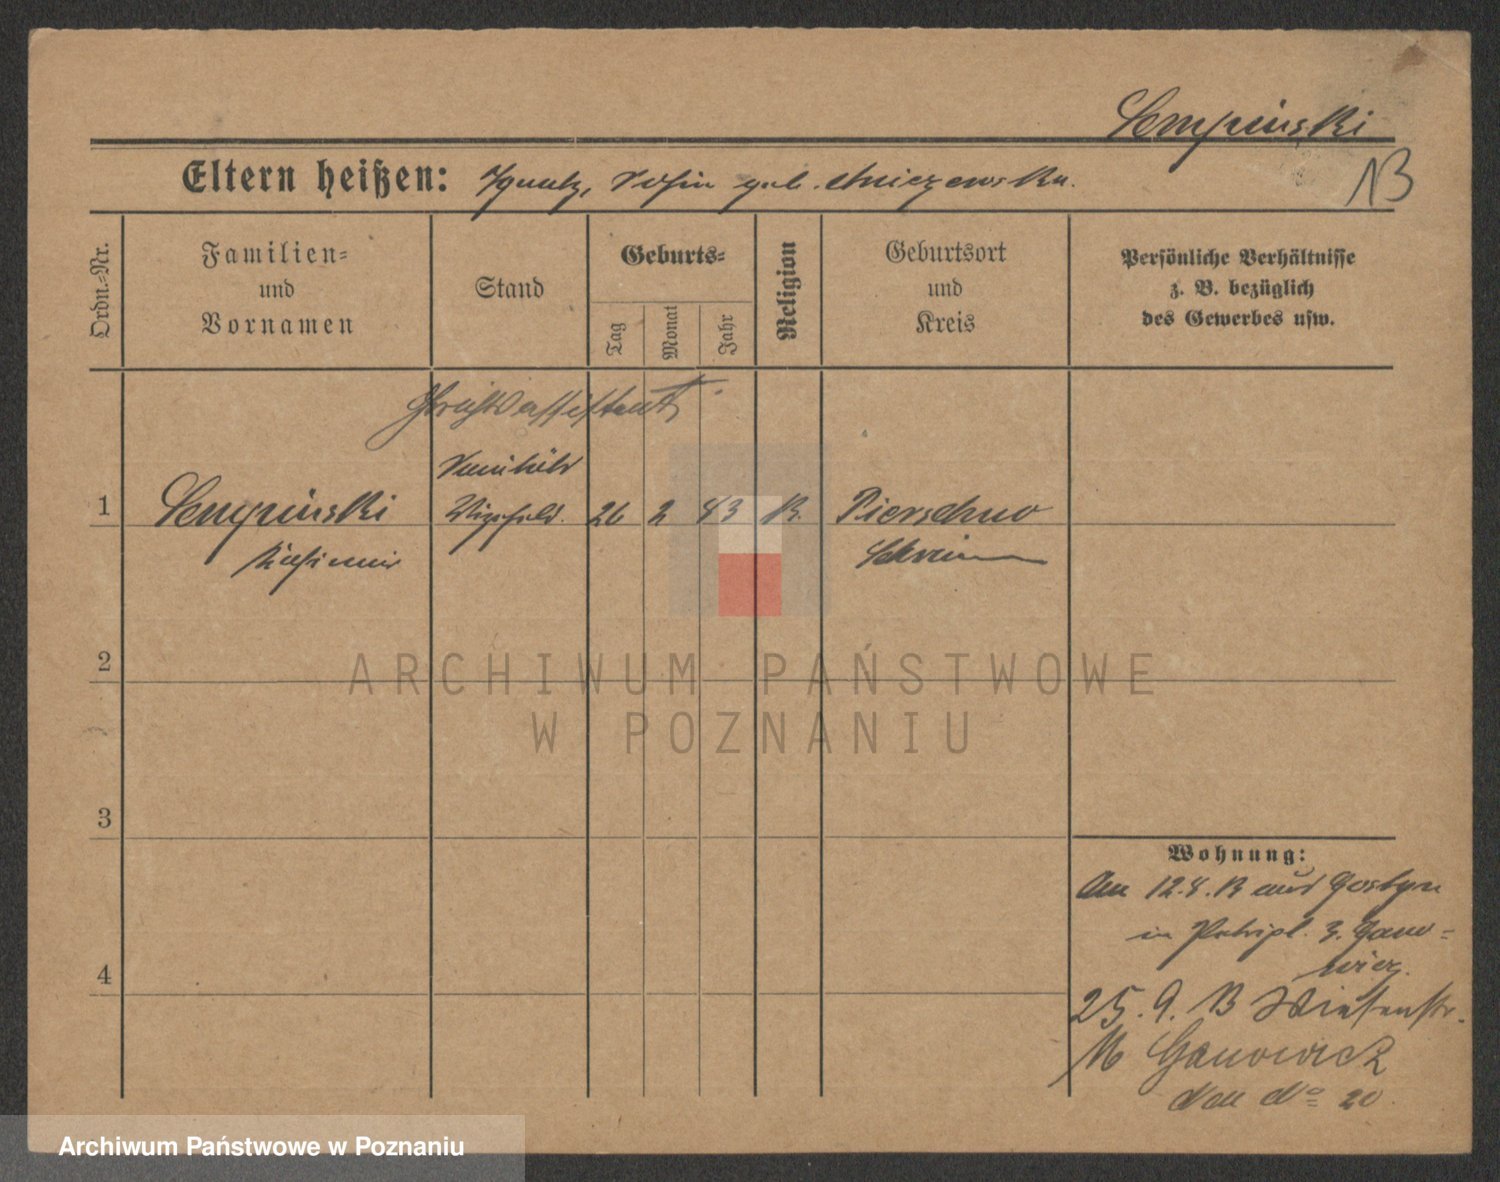 Sempinski
Eltern heißen: Ignatz, geb.
13
Ordn.-Nr.
Familien-
und
Vornamen
Stand
Geburts-
Tag
Monat
Jahr
Religion
Geburtsort
und
Kreis
Persönliche Verhältnisse
z. B. bezüglich
des Gewerbes usw.
1
Sempinski
Kasimir
26 2 83 K.
Pierschno
Schrimm
2
ARCHIWUM PAŃSTWOWE
W POZNANIU
3
4
Wohnung:
Am 12.8.13 aus Gostyn
in b.
25. 9. 13 Wiesenstr.
Ganowicz
20
Archiwum Państwowe w Poznaniu